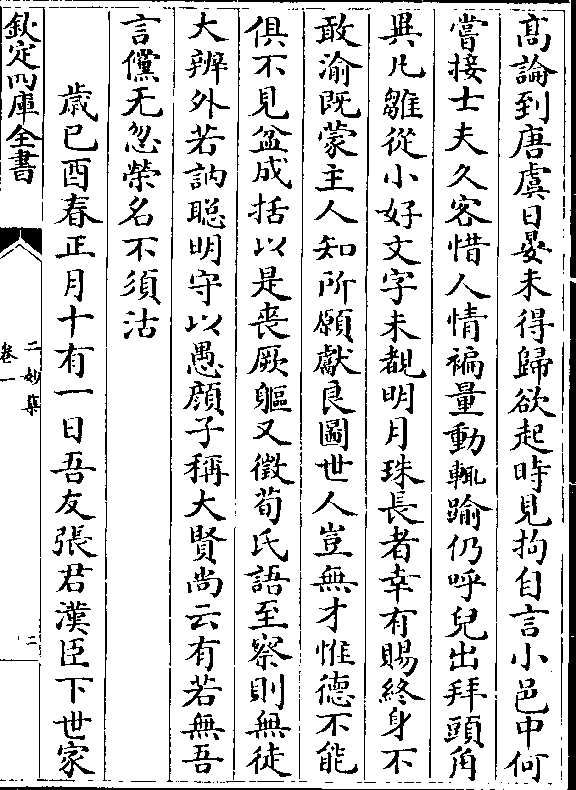 髙論到唐虞日晏未得歸欲起時見拘自言小邑中何
嘗接士夫久客惜人情褊量動輒踰仍呼兒出拜頭角
異凡雛從小好文字未覩明月珠長者幸有賜終身不
敢渝既蒙主人知所願獻良圖世人豈無才惟德不能
俱不見盆成括以是喪厥軀又徵荀氏語至察則無徒
大辨外若訥聡明守以愚顔子稱大賢尚云有若無吾
言儻无忽榮名不須沽
歳已酉春正月十有一日吾友張君漢臣下世家
欽定四庫全書
二妙集
卷一
二